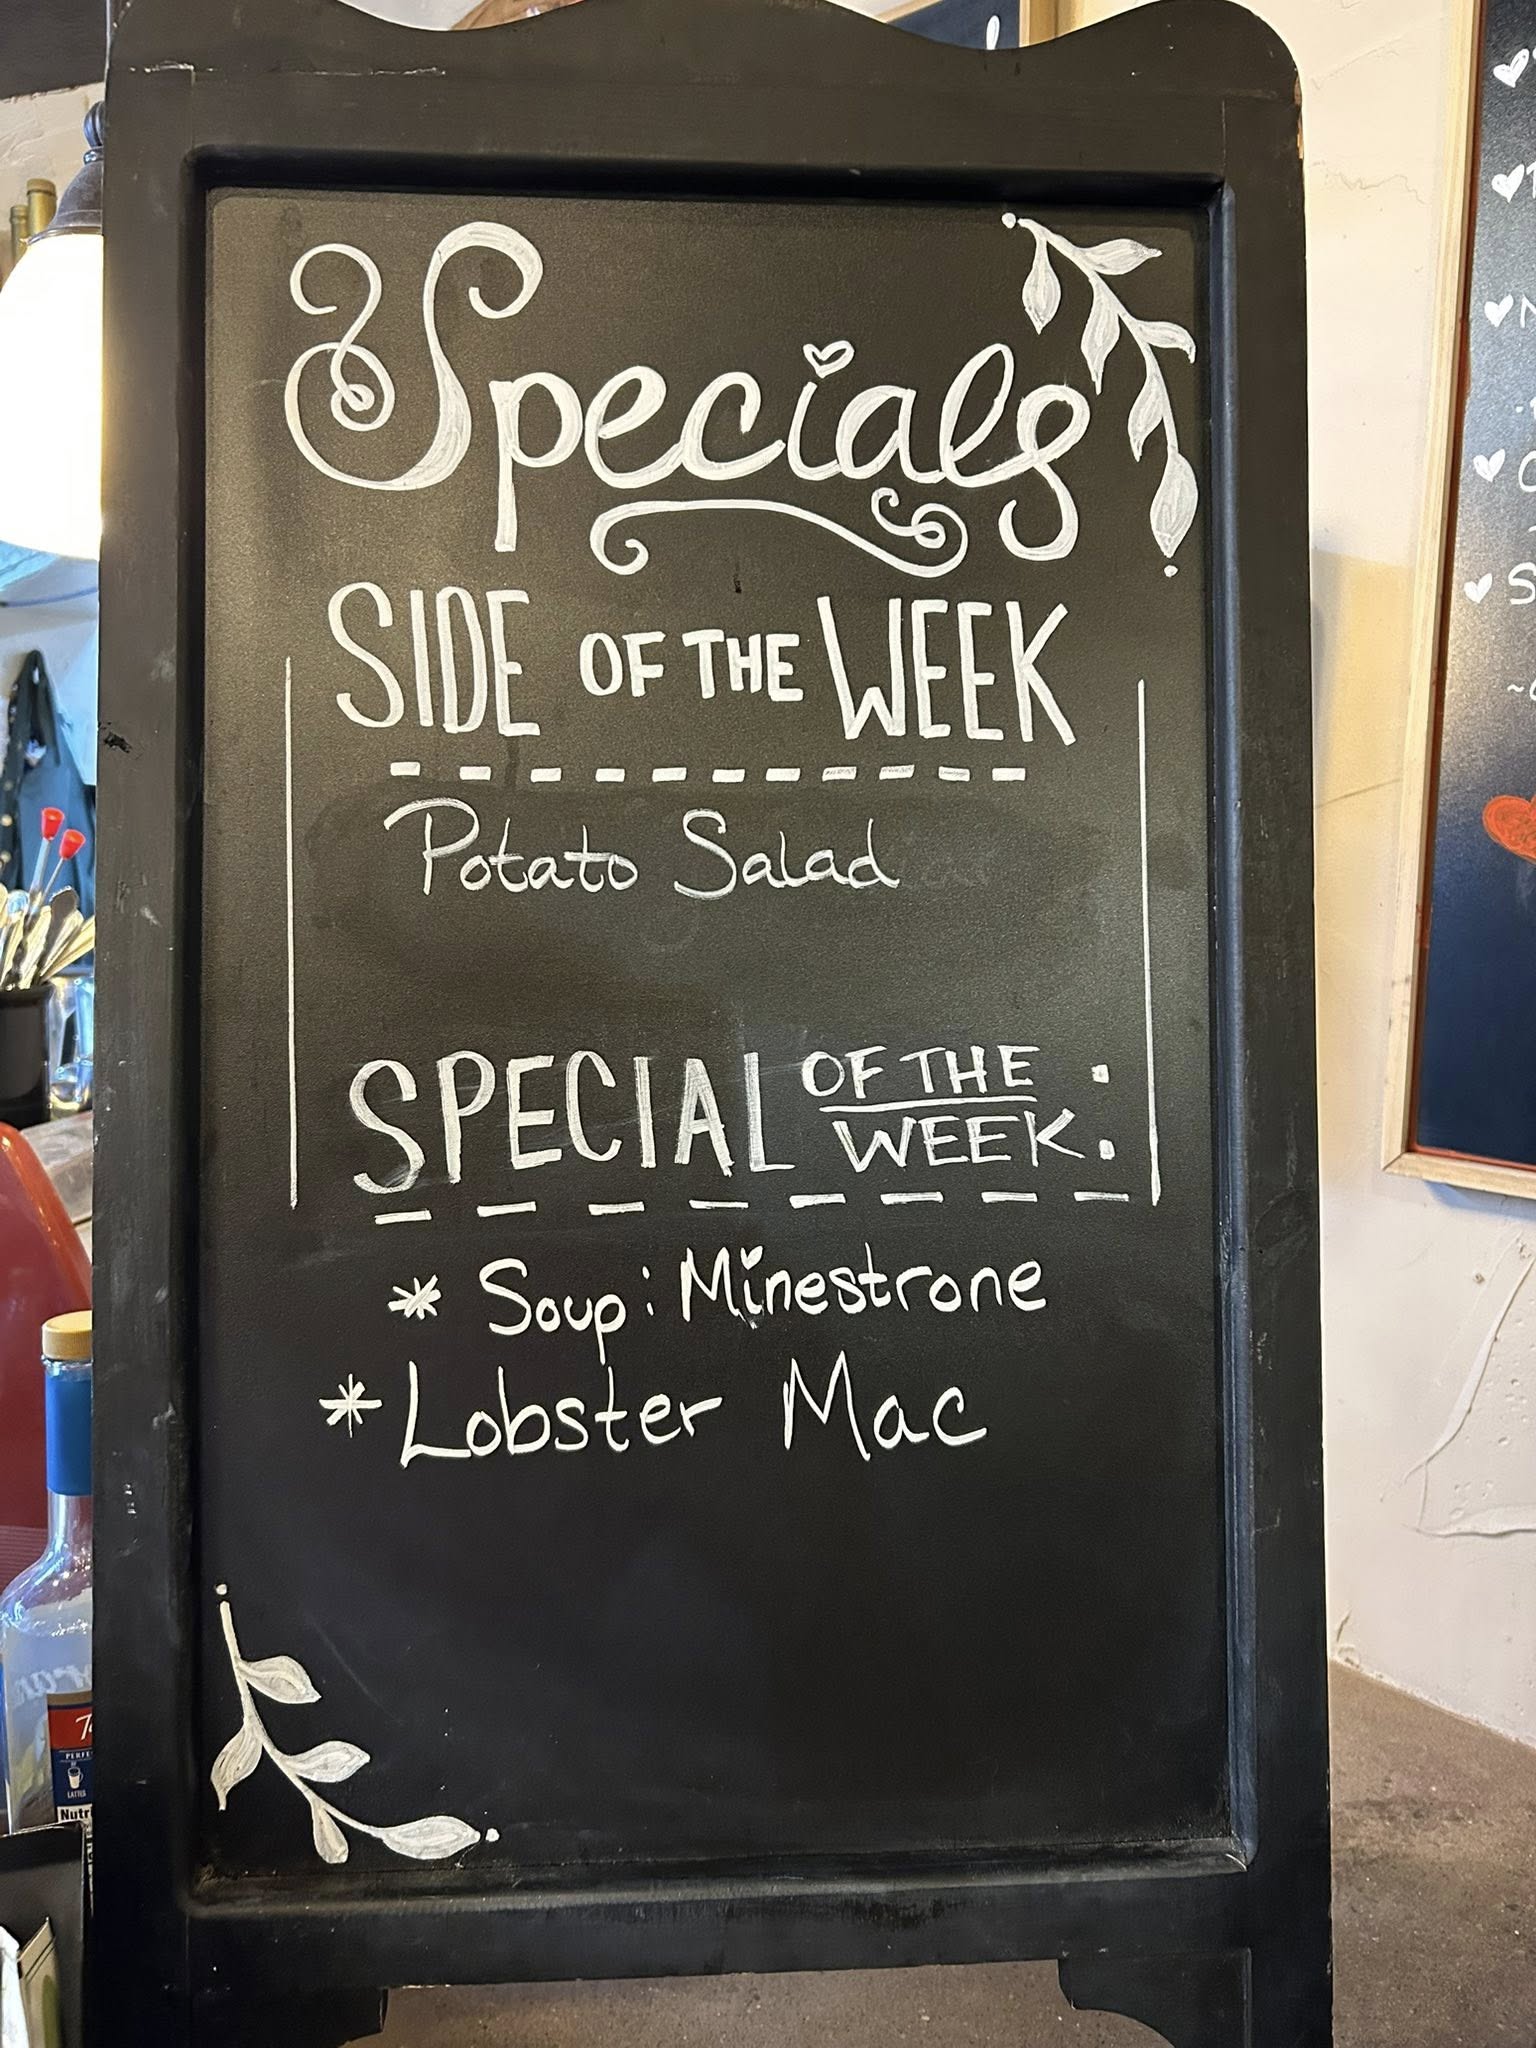 Specials
SIDE OF THE WEEK
Potato Salad
SPECIAL OF THE WEEK:
* Soup: Minestrone
* Lobster Mac
PERFE
LATTES
Nutri